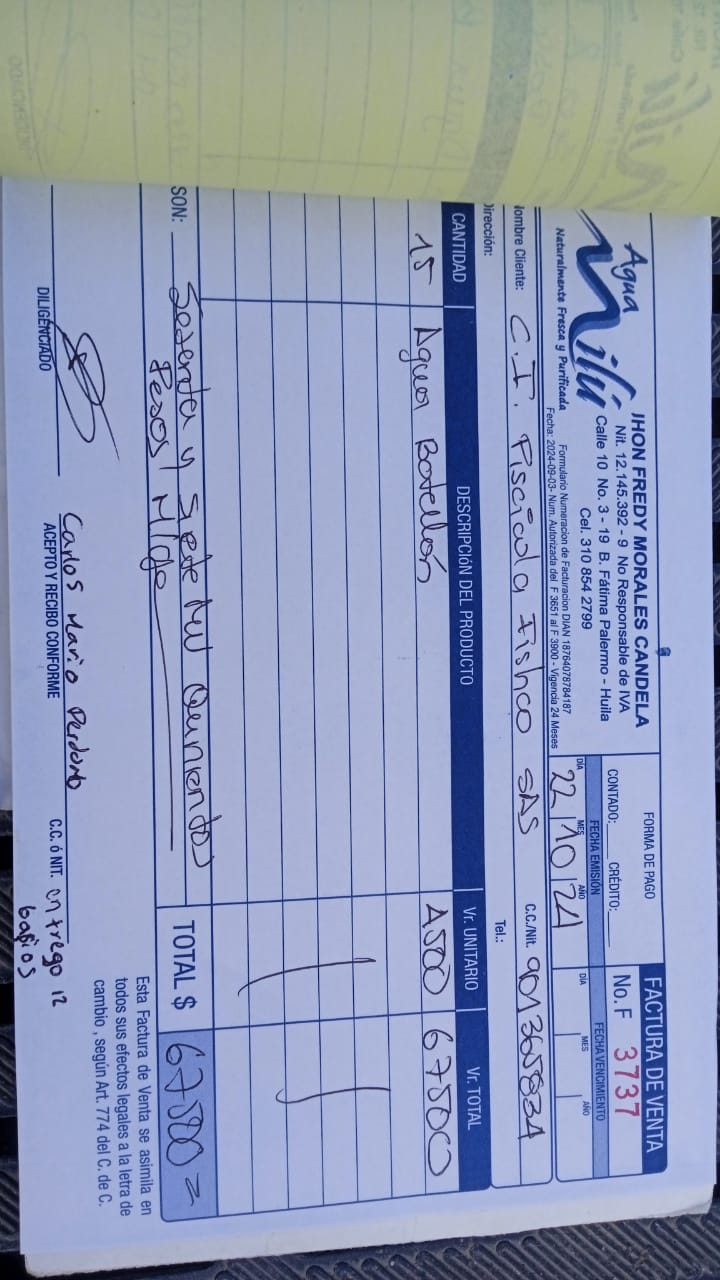 Agua
Nilú
Naturalmente Fresca y Purificada
JHON FREDY MORALES CANDELA
Nit. 12.145.392 - 9 No Responsable de IVA
Calle 10 No. 3 - 19 B. Fátima Palermo - Huila
Cel. 310 854 2799
Formulario Numeracion de Facturacion DIAN 18764078784187
Fecha: 2024-09-03- Num. Autorizada del F 3651 al F 3900 - Vigencia 24 Meses
FORMA DE PAGO
CONTADO: CRÉDITO:
FECHA EMISIÓN
DÍA MES AÑO
22 10 24
FACTURA DE VENTA
No. F 3737
FECHA VENCIMIENTO
DÍA MES AÑO
Nombre Cliente: C.I. Piscicola Fishco SAS C.C./Nit. 901365834
Dirección: Tel.:
CANTIDAD DESCRIPCIóN DEL PRODUCTO Vr. UNITARIO Vr. TOTAL
15 Agua Botellón 4500 67500
SON: Sesenta y Siete Mil Quinientos
Pesos M/cte
TOTAL $ 67500 =
Esta Factura de Venta se asimila en
todos sus efectos legales a la letra de
cambio, según Art. 774 del C. de C.
DILIGENCIADO
Carlos Mario Perdomo
ACEPTO Y RECIBO CONFORME
C.C. ó NIT. entrego 12
bacios